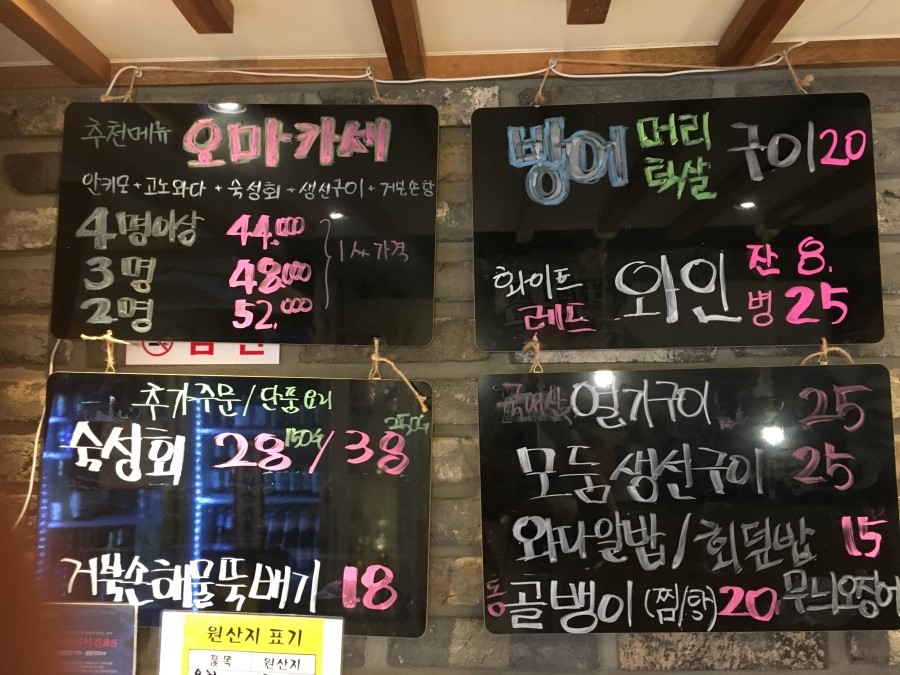 추천메뉴 오마카세
안키모+고노와다+숙성회+생선구이+거북손탕
4명이상 44.000
3명 48.000
2명 52.000
1人 가격
방어 머리 턱살 구이 20
화이트 레드 와인 잔 8.
병 25
추가주문/단품요리
숙성회 28 150g / 38 250g
거북손해물뚝배기 18
열기구이 25
모둠생선구이 25
와다알밥/회덮밥 15
동골뱅이(찜/탕) 20 무늬오징어
금연
원산지 표기
품목 원산지